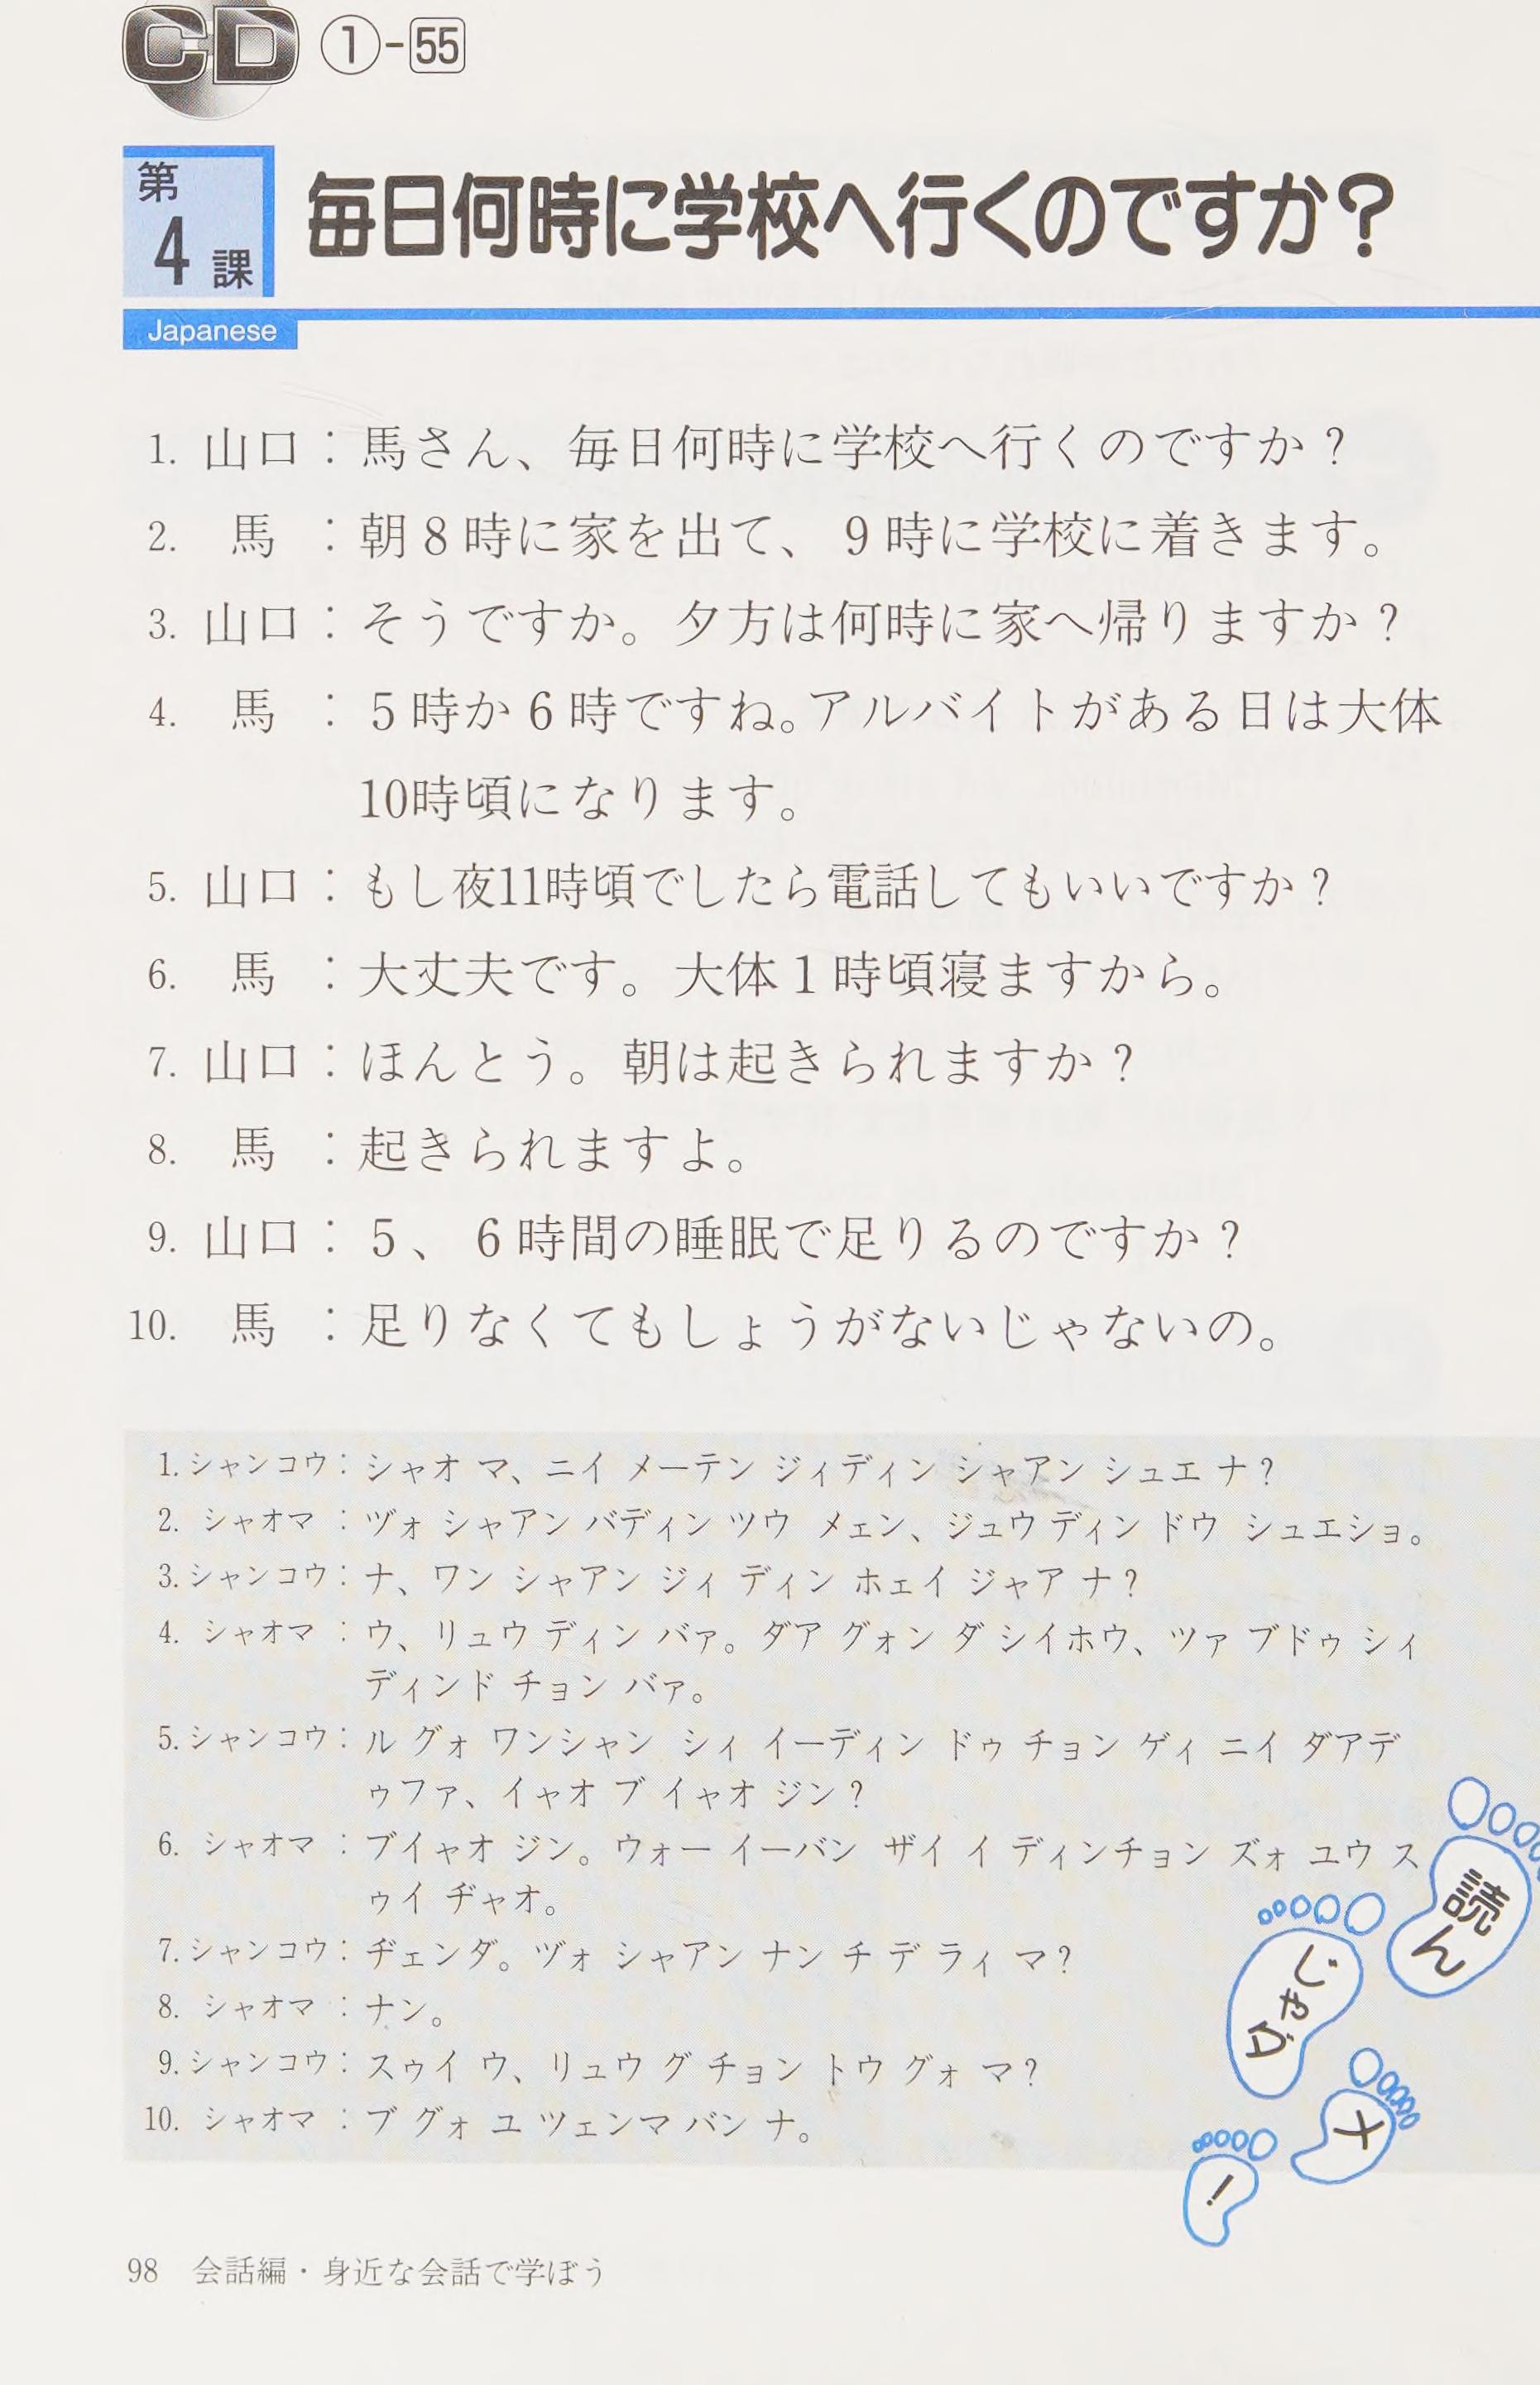 CD ①-55
第4課 毎日何時に学校へ行くのですか?
Japanese
1. 山口：馬さん、毎日何時に学校へ行くのですか？
2. 馬：朝8時に家を出て、9時に学校に着きます。
3. 山口：そうですか。夕方は何時に家へ帰りますか？
4. 馬：5時か6時ですね。アルバイトがある日は大体
10時頃になります。
5. 山口：もし夜11時頃でしたら電話してもいいですか？
6. 馬：大丈夫です。大体1時頃寝ますから。
7. 山口：ほんとう。朝は起きられますか？
8. 馬：起きられますよ。
9. 山口：5、6時間の睡眠で足りるのですか？
10. 馬：足りなくてもしょうがないじゃないの。
1. シャンコウ：シャオ マ、ニイ メーテン ジィディン シャアン シュエ ナ？
2. シャオマ：ヅォ シャアン バディン ツウ メェン、ジュウ ディン ドウ シュエショ。
3. シャンコウ：ナ、ワン シャアン ジィ ディン ホェイ ジャア ナ？
4. シャオマ：ウ、リュウ ディン バァ。ダア グォン ダ シイホウ、ツァ ブドゥ シィ
ディンド チョン バァ。
5. シャンコウ：ル グォ ワンシャン シィ イーディン ドゥ チョン ゲィ ニイ ダアデ
ゥファ、イャオ ブ イャオ ジン？
6. シャオマ：ブイャオ ジン。ウォー イーバン ザイ イ ディンチョン ズォ ユウ ス
ゥイ ヂャオ。
7. シャンコウ：ヂェンダ。ヅォ シャアン ナン チ デ ライ マ？
8. シャオマ：ナン。
9. シャンコウ：スゥイ ウ、リュウ グ チョン トウ グォ マ？
10. シャオマ：ブ グォ ユ ツェンマ バン ナ。
読ん
じゃダ
メ
！
98 会話編・身近な会話で学ぼう